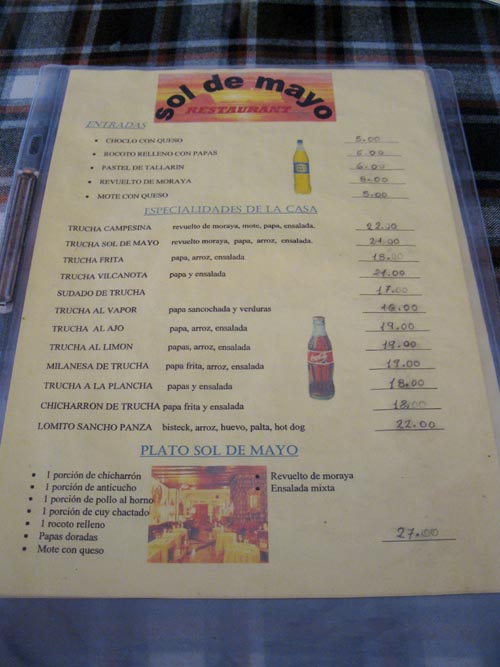 sol de mayo
RESTAURANT
ENTRADAS
• CHOCLO CON QUESO 5.00
• ROCOTO RELLENO CON PAPAS 6.00
• PASTEL DE TALLARIN 6.00
• REVUELTO DE MORAYA 5.00
• MOTE CON QUESO 5.00
ESPECIALIDADES DE LA CASA
TRUCHA CAMPESINA revuelto de moraya, mote, papa, ensalada. 22.00
TRUCHA SOL DE MAYO revuelto moraya, papa, arroz, ensalada. 21.00
TRUCHA FRITA papa, arroz, ensalada 18.00
TRUCHA VILCANOTA papa y ensalada 21.00
SUDADO DE TRUCHA 17.00
TRUCHA AL VAPOR papa sancochada y verduras 16.00
TRUCHA AL AJO papa, arroz, ensalada 19.00
TRUCHA AL LIMON papas, arroz, ensalada 19.00
MILANESA DE TRUCHA papa frita, arroz, ensalada 19.00
TRUCHA A LA PLANCHA papas y ensalada 18.00
CHICHARRON DE TRUCHA papa frita y ensalada 18.00
LOMITO SANCHO PANZA bisteck, arroz, huevo, palta, hot dog 22.00
PLATO SOL DE MAYO
• 1 porción de chicharrón
• 1 porción de anticucho
• 1 porción de pollo al horno
• 1 porción de cuy chactado
• 1 rocoto relleno
• Papas doradas
• Mote con queso
• Revuelto de moraya
• Ensalada mixta
27.00